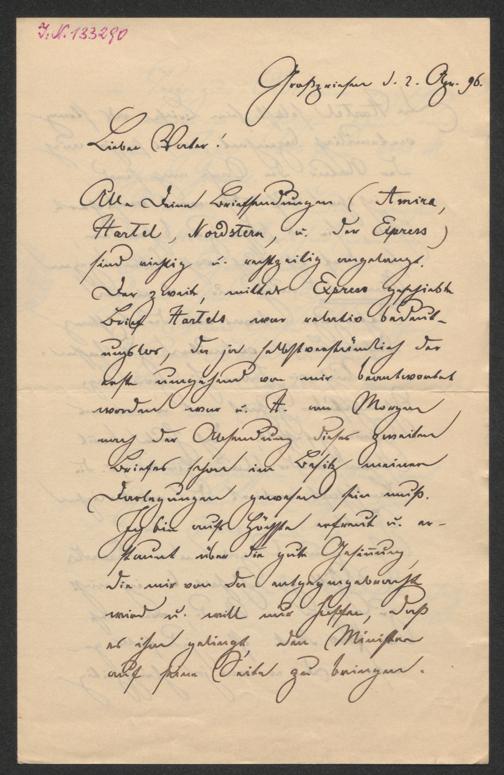 J.N. 133290
Großpriesen d. 2. Apr. 96.
Lieber Vater!
Alle Deine Briefsendungen (Amira,
Hartel, Nordstern, u. der Express)
sind richtig u. rechtzeitig angelangt.
Der zweite, mittels Express geschickte
Brief Hartels war relativ bedeut-
ungslos, da ja selbstverständlich der
erste umgehend von mir beantwortet
worden war u. H. am Morgen
nach der Absendung dieses zweiten
Briefes schon im Besitz meiner
Darlegungen gewesen sein muß.
Ich bin aufs Höchste erfreut u. er-
staunt über die gute Gesinnung,
die mir von da entgegengebracht
wird u. will nur hoffen, daß
es ihm gelingt, den Minister
auf seine Seite zu bringen.